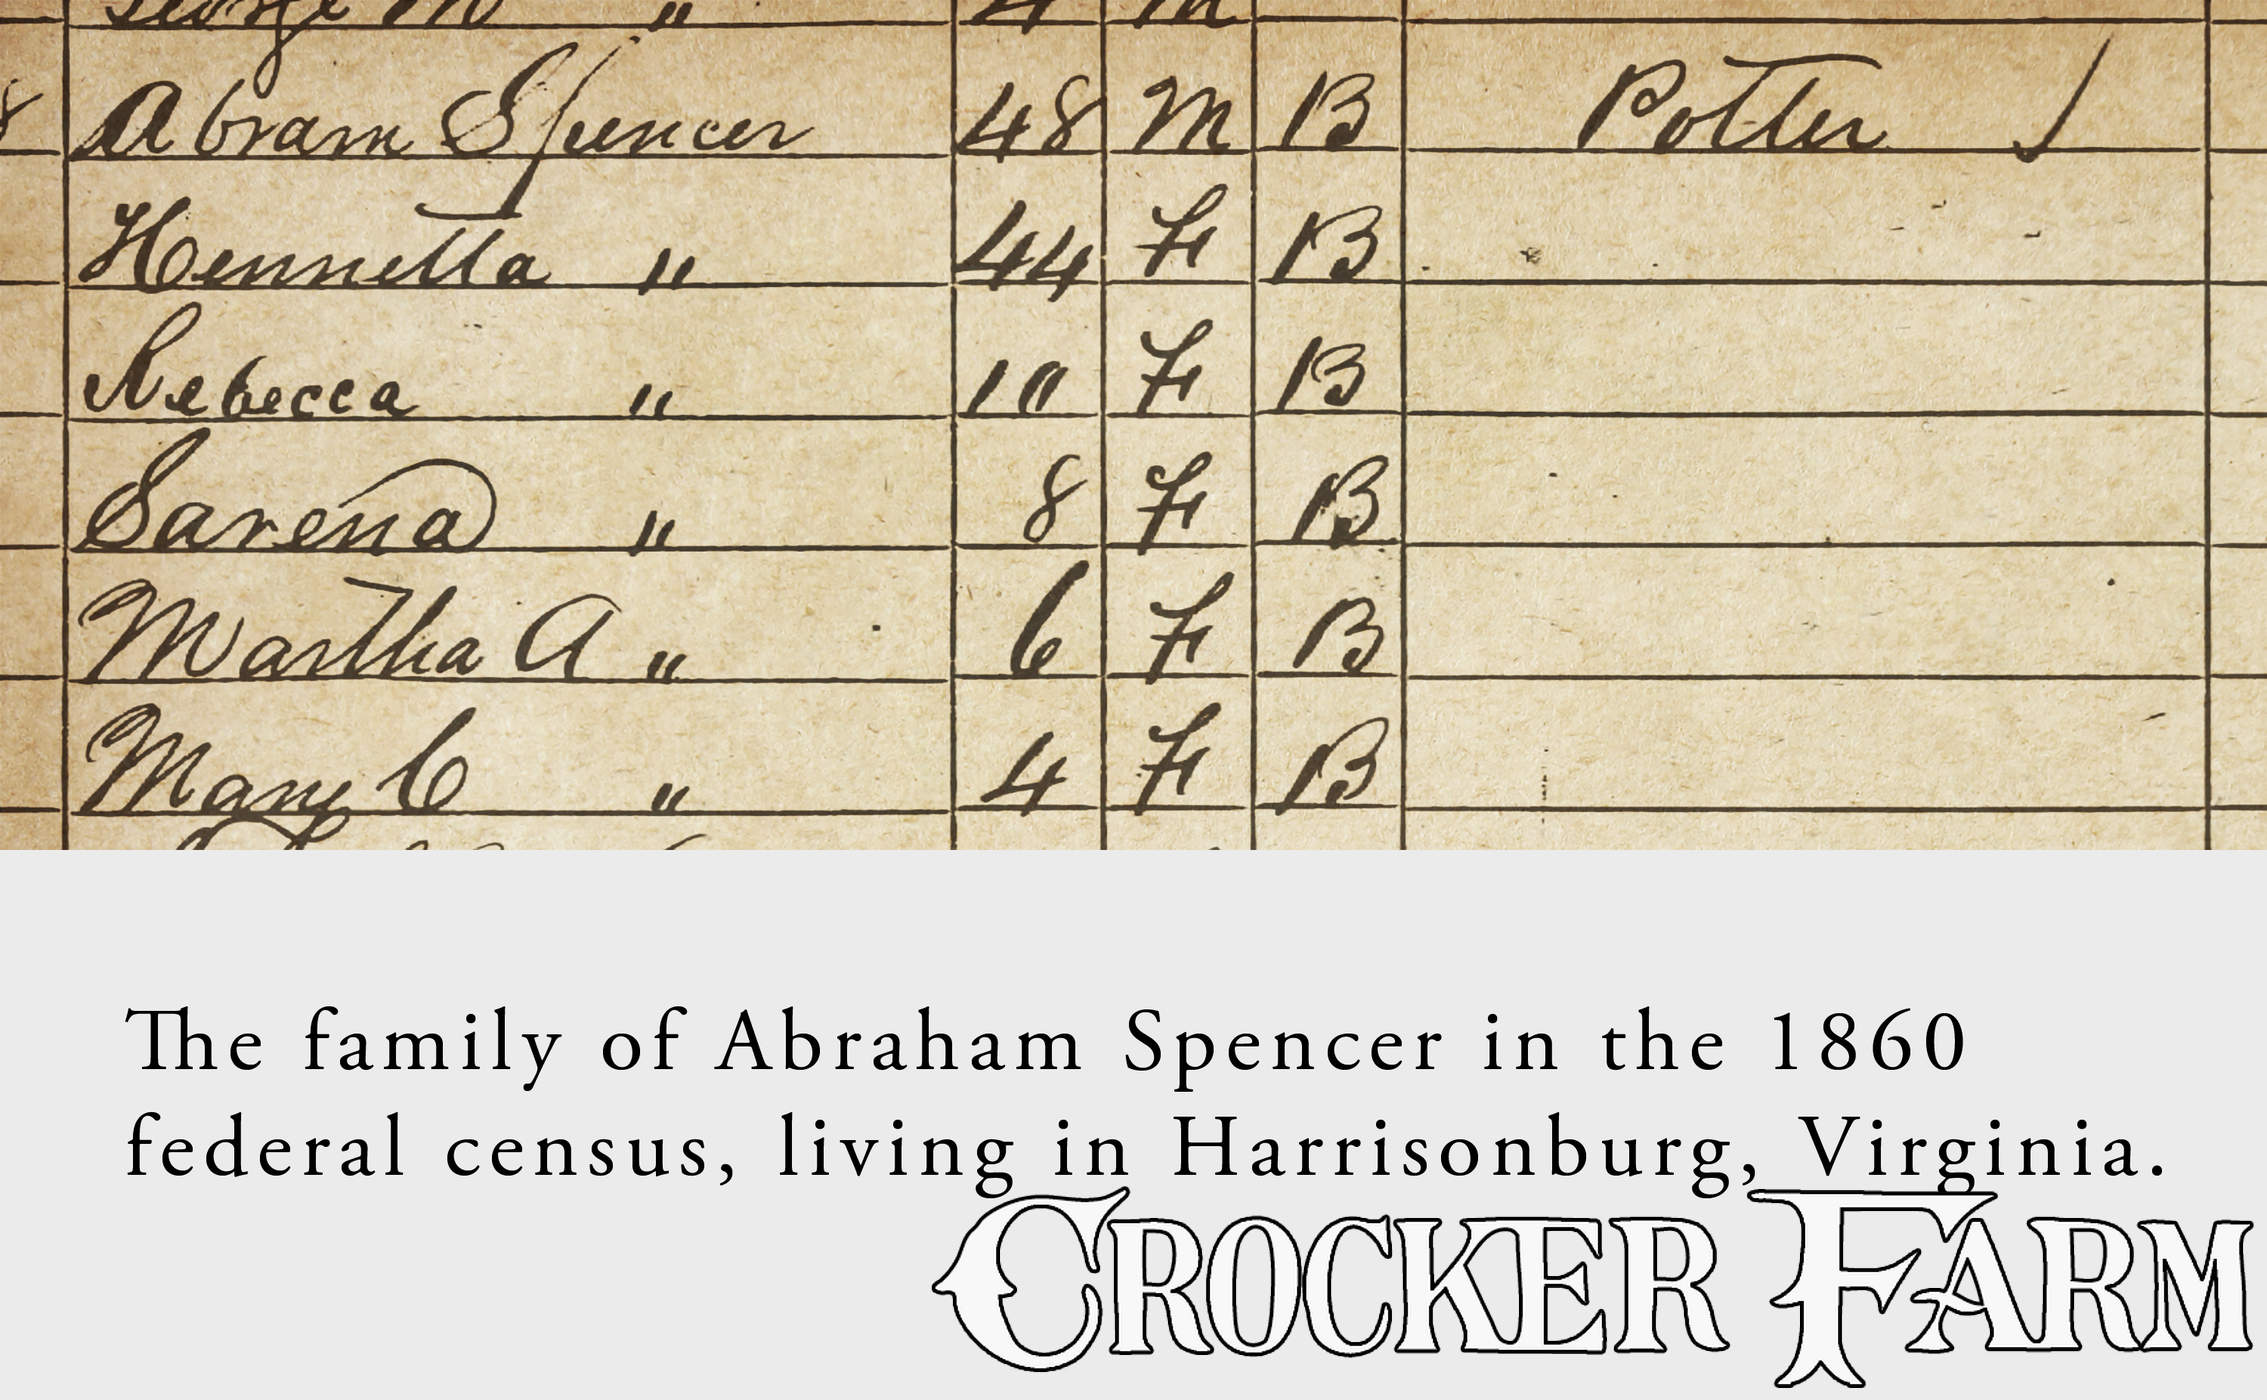 George M "  4 M
8 Abram Spencer 48 M B Potter
Hennretta " 44 F B
Rebecca " 10 F B
Sarena " 8 F B
Martha A " 6 F B
Mary C " 4 F B
The family of Abraham Spencer in the 1860
federal census, living in Harrisonburg, Virginia.
CROCKER FARM